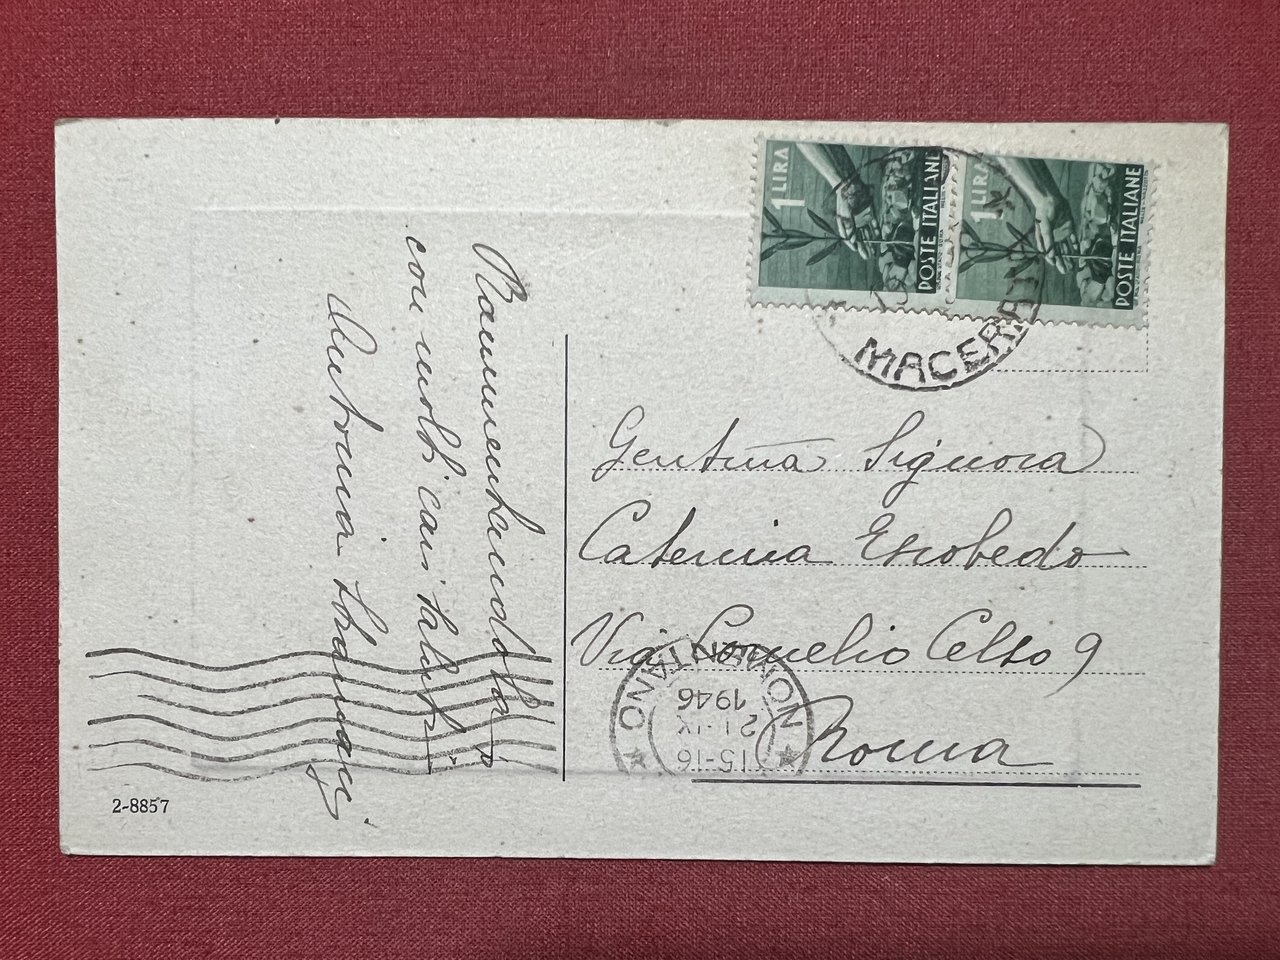 1 LIRA
POSTE ITALIANE
1 LIRA
POSTE ITALIANE
MACERATA
Rammentandola
con molti cari saluti
Antonia
Gentma Signora
Caterina Escobedo
Via Cornelio Celso 9
Roma
NOMENTANO
15-16
21·IX
1946
2-8857